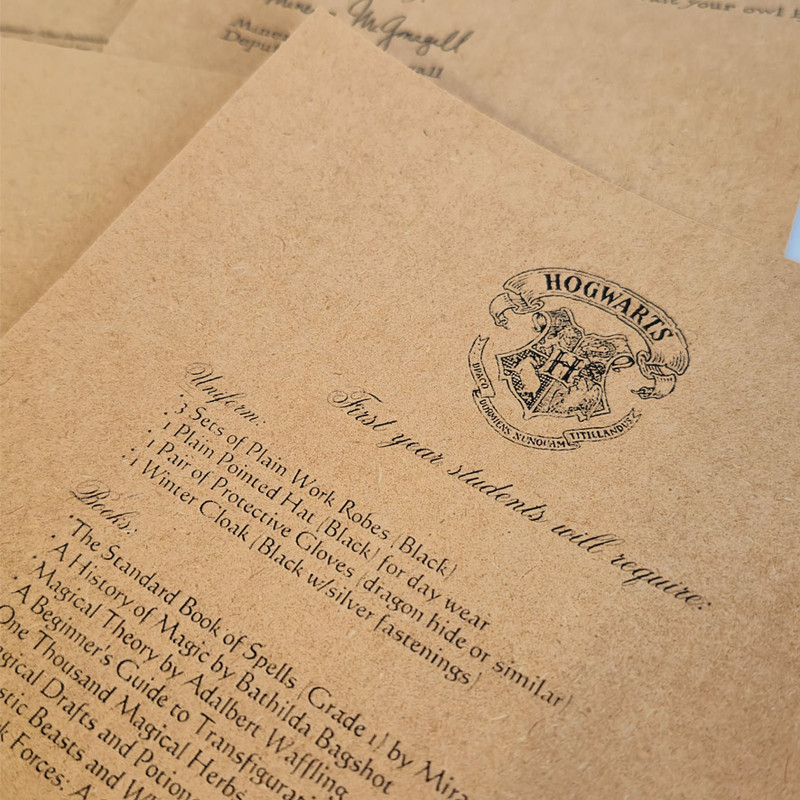 McGonagall
your own
HOGWARTS
H
DRACO DORMIENS NUNQUAM TITILLANDUS
First year students will require:
Uniform:
· 3 Sets of Plain Work Robes (Black)
· 1 Plain Pointed Hat (Black) for day wear
· 1 Pair of Protective Gloves (dragon hide or similar)
· 1 Winter Cloak (Black w/silver fastenings)
Books:
· The Standard Book of Spells (Grade 1) by Mira
· A History of Magic by Bathilda Bagshot
· Magical Theory by Adalbert Waffling
· A Beginner's Guide to Transfigurati
One Thousand Magical Herbs
gical Drafts and Potions
stic Beasts and W
k Forces: A